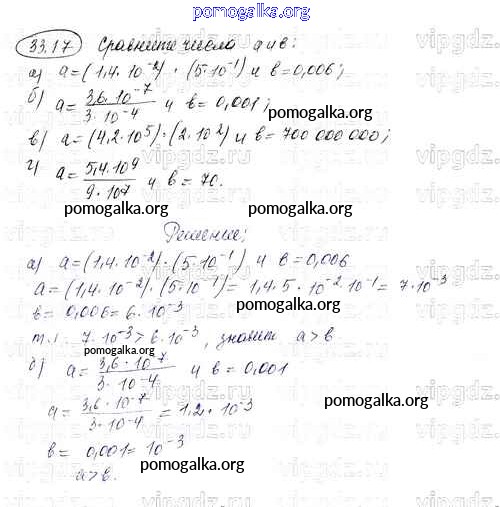 pomogalka.org
33.17 Сравните числа а и в:
а) a=(1,4·10⁻²)·(5·10⁻¹) и в=0,006;
б) a= 3,6·10⁻⁷ / 3·10⁻⁴ и в=0,001;
pomogalka.org
в) a=(4,2·10⁵)·(2·10²) и в=700 000 000;
г) a= 5,4·10⁹ / 9·10⁷ и в=70.
pomogalka.org pomogalka.org
Решение:
а) a=(1,4·10⁻²)·(5·10⁻¹) и в=0,006
a=(1,4·10⁻²)·(5·10⁻¹)=1,4·5·10⁻²·10⁻¹=7·10⁻³
в=0,006=6·10⁻³
т.к. 7·10⁻³>6·10⁻³, значит a>в.
pomogalka.org
б) a= 3,6·10⁻⁷ / 3·10⁻⁴ и в=0,001
a= 3,6·10⁻⁷ / 3·10⁻⁴ =1,2·10⁻³
pomogalka.org
в= 0,001=10⁻³
pomogalka.org
a>в.
pomogalka.org